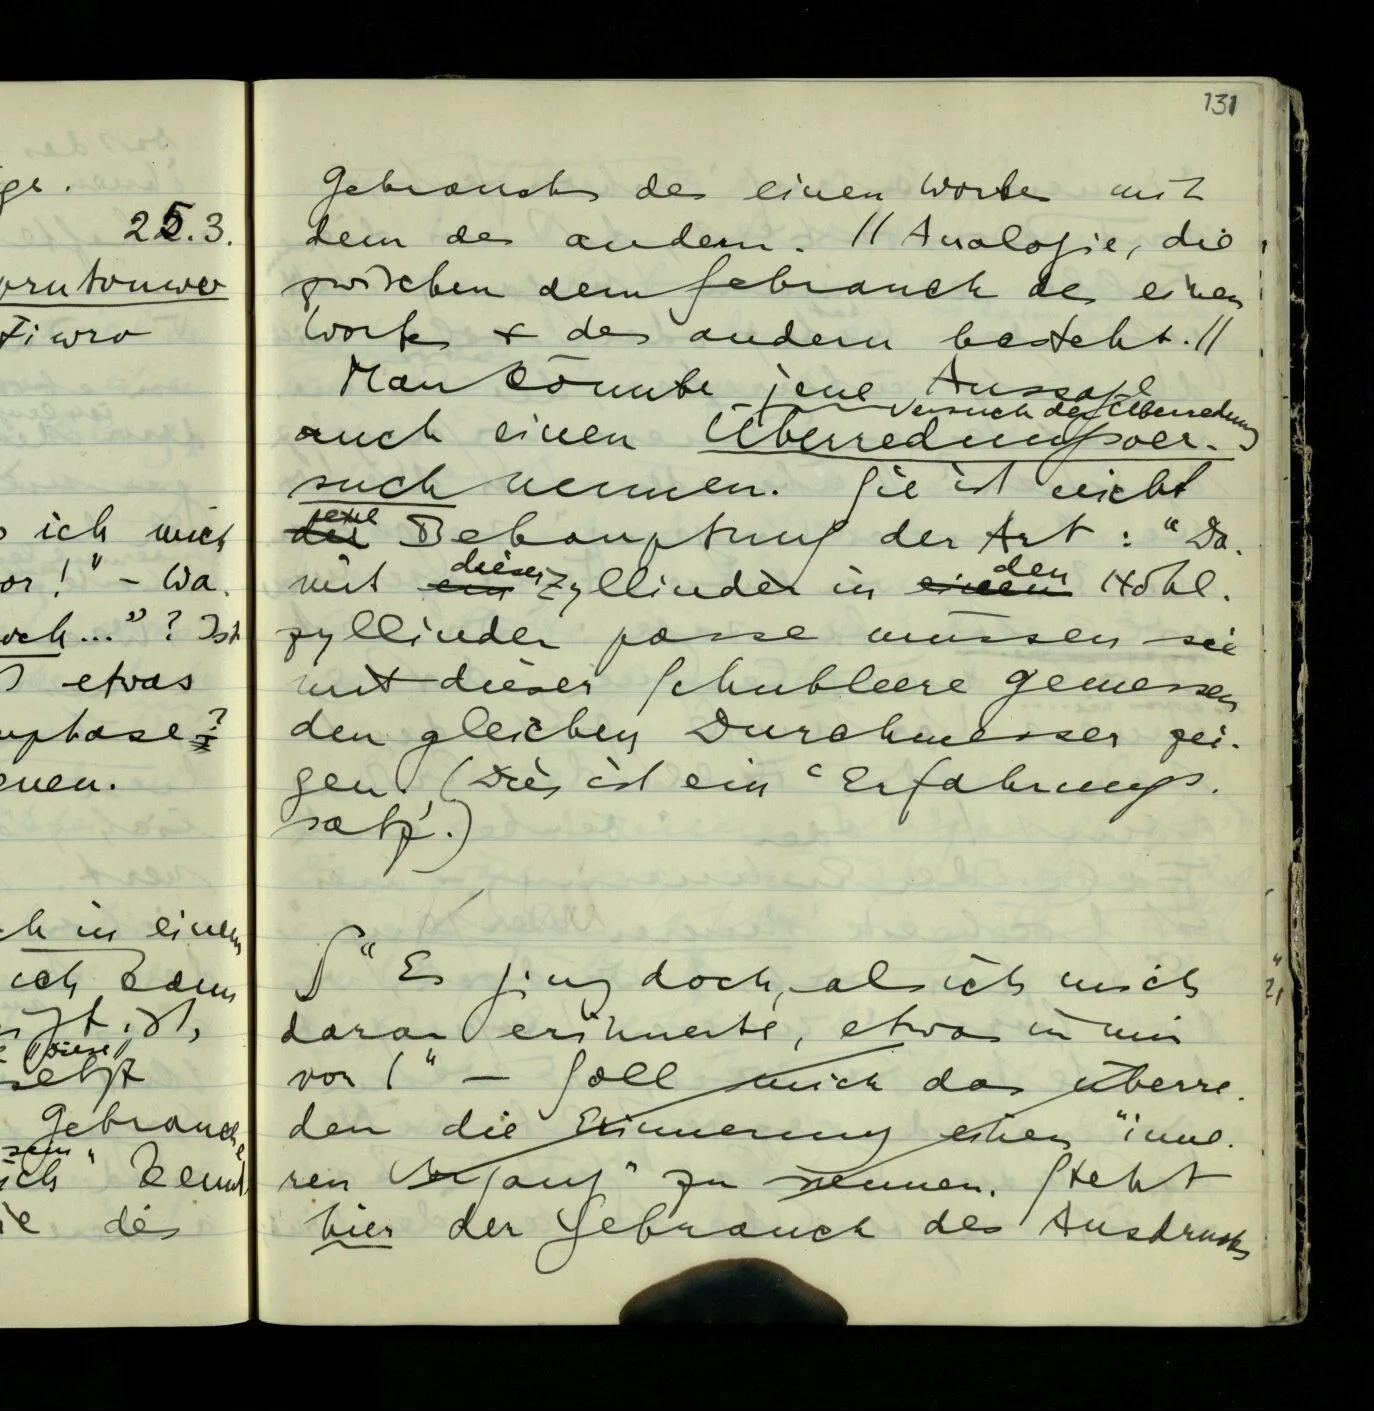 131
ge.
25.3.
Fiwro
ich mich
or!" – Wa-
och..."? Ist
etwas
phase?
enen.
ch in einem
ich kann
"diese"
selbst
Gebrauch
sein
ich" kennt
ie des
Gebrauchs des einen Wortes mit
dem des andern. // Analogie, die
zwischen dem Gebrauch des einen
Worts & des andern besteht. //
Man könnte jene Aussage
Versuch der Überredung
auch einen Überredungsver-
such nennen. Sie ist nicht
jene
die Behauptung der Art: "Da-
dieser den
mit ein Zyllinder in einen Hohl-
zyllinder passe müssen sie
mit dieser Schubleere gemessen
den gleichen Durchmesser zei-
gen. (Dies ist ein 'Erfahrungs-
satz'.)
∫ "Es ging doch, als ich mich
daran erinnerte, etwas in mir
vor!" – Soll mich das überre-
den die Erinnerung einen "inne-
ren Vorgang" zu nennen. Steht
hier der Gebrauch des Ausdrucks